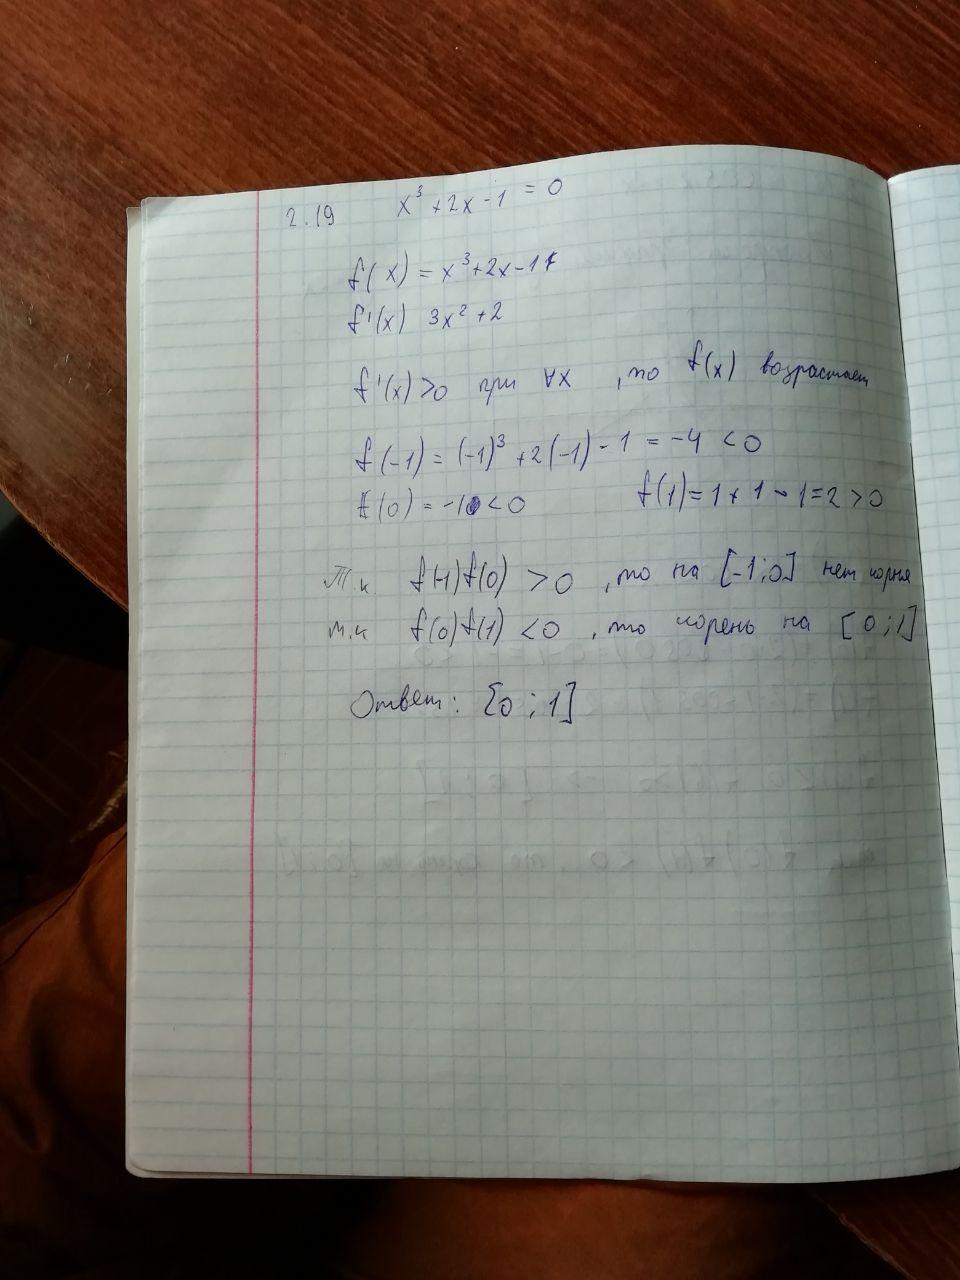 2.19 x³ + 2x - 1 = 0
f(x) = x³ + 2x - 1
f'(x) 3x² + 2
f'(x) > 0 при ∀x , то f(x) возрастает
f(-1) = (-1)³ + 2(-1) - 1 = -4 < 0
f(0) = -1 < 0 f(1) = 1 + 1 - 1 = 2 > 0
Т.к f(-1) f(0) > 0 , то на [-1;0] нет корня
т.к f(0) f(1) < 0 , то корень на [0;1]
Ответ: [0;1]